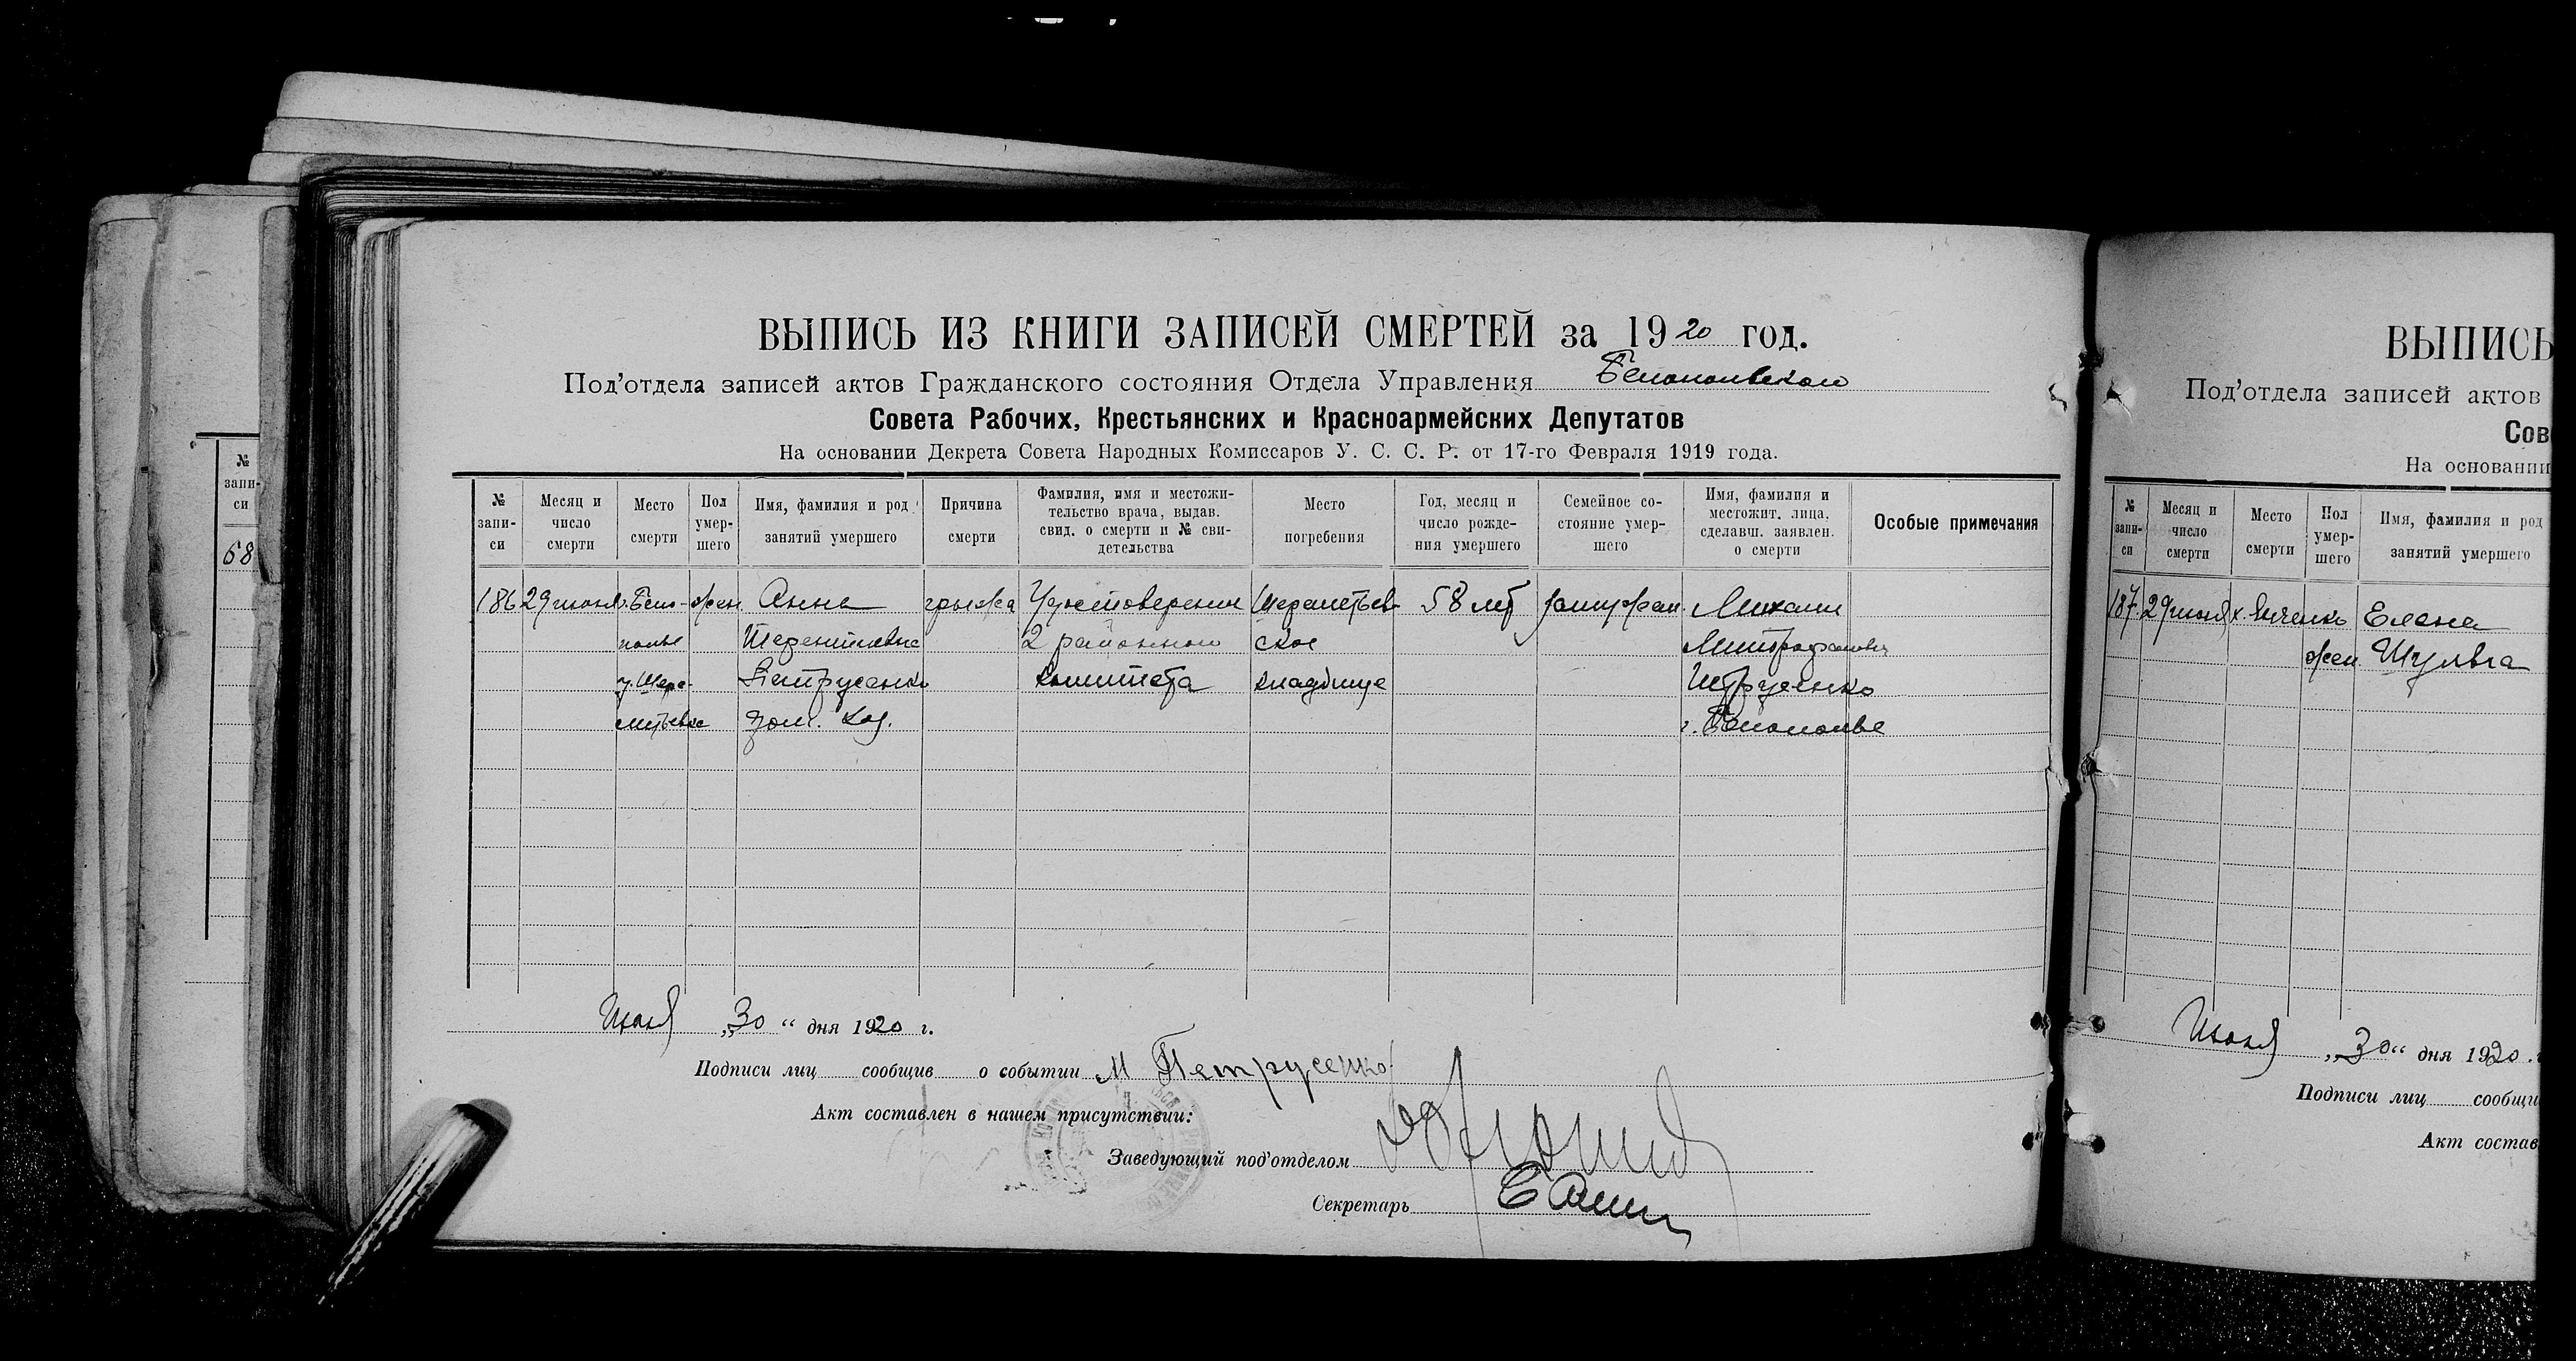 ВЫПИСЬ ИЗ КНИГИ ЗАПИСЕЙ СМЕРТЕЙ за 1920 год.
Под'отдела записей актов Гражданского состояния Отдела Управления Белопольского
Совета Рабочих, Крестьянских и Красноармейских Депутатов
На основании Декрета Совета Народных Комиссаров У. С. С. Р. от 17-го Февраля 1919 года.
№ запи-си
Месяц и число смерти
Место смерти
Пол умер-шего
Имя, фамилия и род занятий умершего
Причина смерти
Фамилия, имя и местожи-тельство врача, выдав. свид. о смерти и № сви-детельства
Место погребения
Год, месяц и число рожде-ния умершего
Семейное со-стояние умер-шего
Имя, фамилия и местожит. лица, сделавш. заявлен. о смерти
Особые примечания
186 29 июня г. Бело- жен. Анна грыжа Удостоверение Шереметьев- 58 лет Михаил
полье 2 районного ское Митрофанович
Петрусенко комитета кладбище Петрусенко
дом. хоз. г. Белополье
Июня „30“ дня 1920 г.
Подписи лиц сообщив о событии М Петрусенко
Акт составлен в нашем присутствии:
Заведующий под'отделом
Секретарь
№ запи-си
68
ВЫПИСЬ
Под'отдела записей актов
Сов
На основании
№ запи-си
Месяц и число смерти
Место смерти
Пол умер-шего
Имя, фамилия и род занятий умершего
187 29 июня Елена
жен.
Июня „30“ дня 1920 г
Подписи лиц сообщи
Акт состав